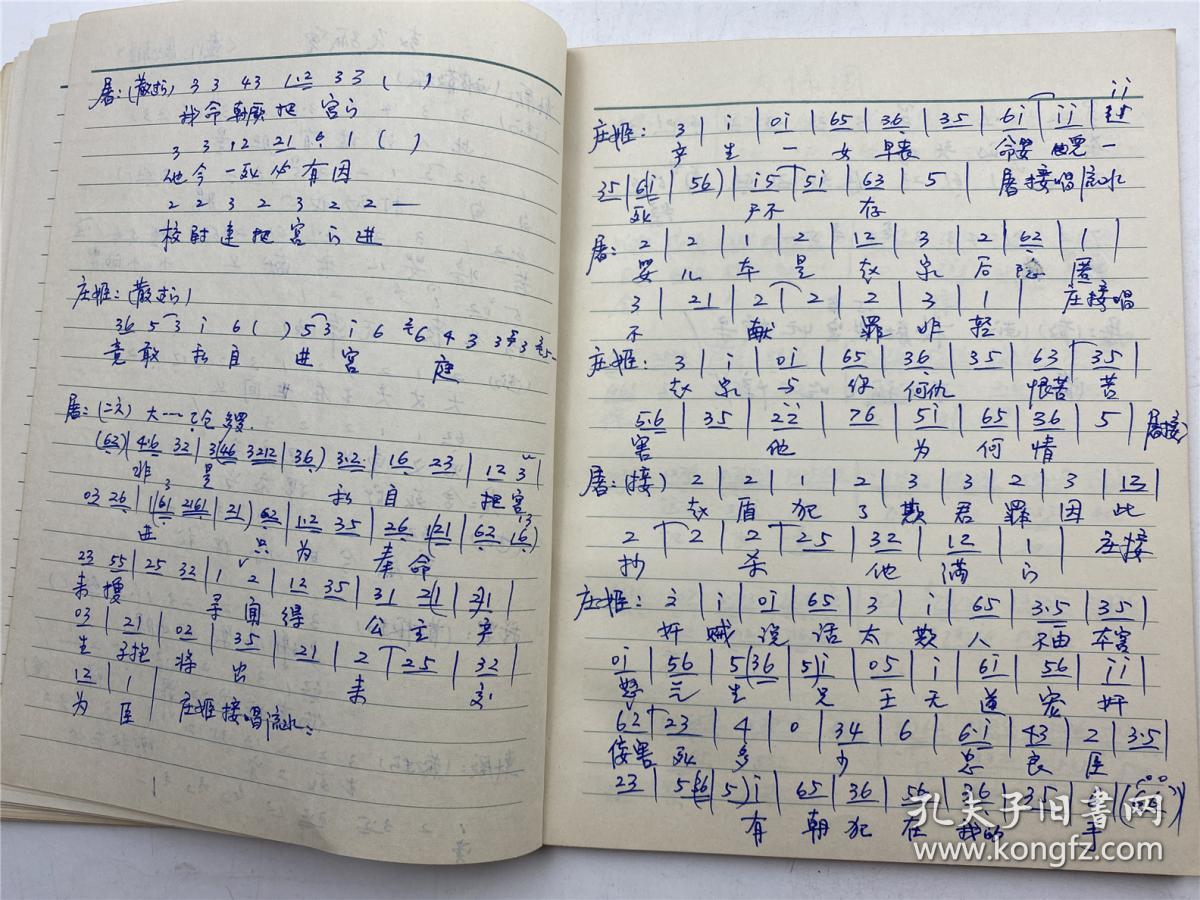 屠：(散板) 3 3 43 1·2 3 3 ( )
我命朝 把 宫门
3 3 12 21 6 1 ( )
他今 一 必有因
2 2 3 2 3 2 2 —
校尉速把宫门进
庄姬：(散板)
36 5 3 i 6 ( ) 5 3 i 6 6 4 3 3
竟敢私自 进宫 庭
屠：(二六) 大
(62) | 4·6 32 | 3(46 3212 | 36) 3·2 | 16 23 | 12 3 |
非 是 私自 把宫
03 26
进 只 为 奉 命
23 55 | 25 32 | 1 2 | 12 35 | 31 21 | 21 |
来搜 寻 闻 得 公 主 产
03 | 21 | 02 | 35 | 21 | 2 | 25 | 32 |
生 子 把 将 出 来 交
12 | 1 |
为 臣 庄姬接唱流水：
庄姬： 3 | i | 0i | 65 | 36 | 35 | 6i | ii |
产 生 一 女 早丧 命 婴 一
35 | 6i | 56) | i5 | 5i | 63 | 5 | 屠接唱流水
尸不 存
屠： 2 | 2 | 1 | 2 | 12 | 3 | 2 | 62 | 1 |
婴 儿 本 是 赵 家 后 隐 匿
3 | 21 | 2 | 2 | 2 | 3 | 1 | 庄接唱
不 献 罪 非 轻
庄姬： 3 | i | 0i | 65 | 36 | 35 | 63 | 35 |
赵 家 与 你 何仇 恨苦 苦
56 | 35 | 22 | 76 | 5i | 65 | 36 | 5 | 屠接)
害 他 为 何 情
屠：(接) 2 | 2 | 1 | 2 | 3 | 3 | 2 | 3 | 12 |
赵 盾 犯 了 欺 君 罪 因 此
2 | 2 | 2 | 25 | 32 | 12 | 1 | 庄接
抄 杀 他 满 门
庄姬： 2 | i | 0i | 65 | 3 | i | 65 | 3·5 | 35 |
奸 贼 说 话 太 欺 人 不由 本宫
0i | 56 | 5(36 | 5)i | 05 | i | 6i | 56 | ii |
怒 气 生 兄 王 无 道 宠 奸
62 | 23 | 4 | 0 | 34 | 6 | 6·i | 43 | 2 | 3·5 |
佞害 死 多 少 忠 良 臣
23 | 5(36 | 5)i | 65 | 36 | 56 | 36 | 35 |
有 朝 犯 在 我的 手
孔夫子旧书网
www.kongfz.com